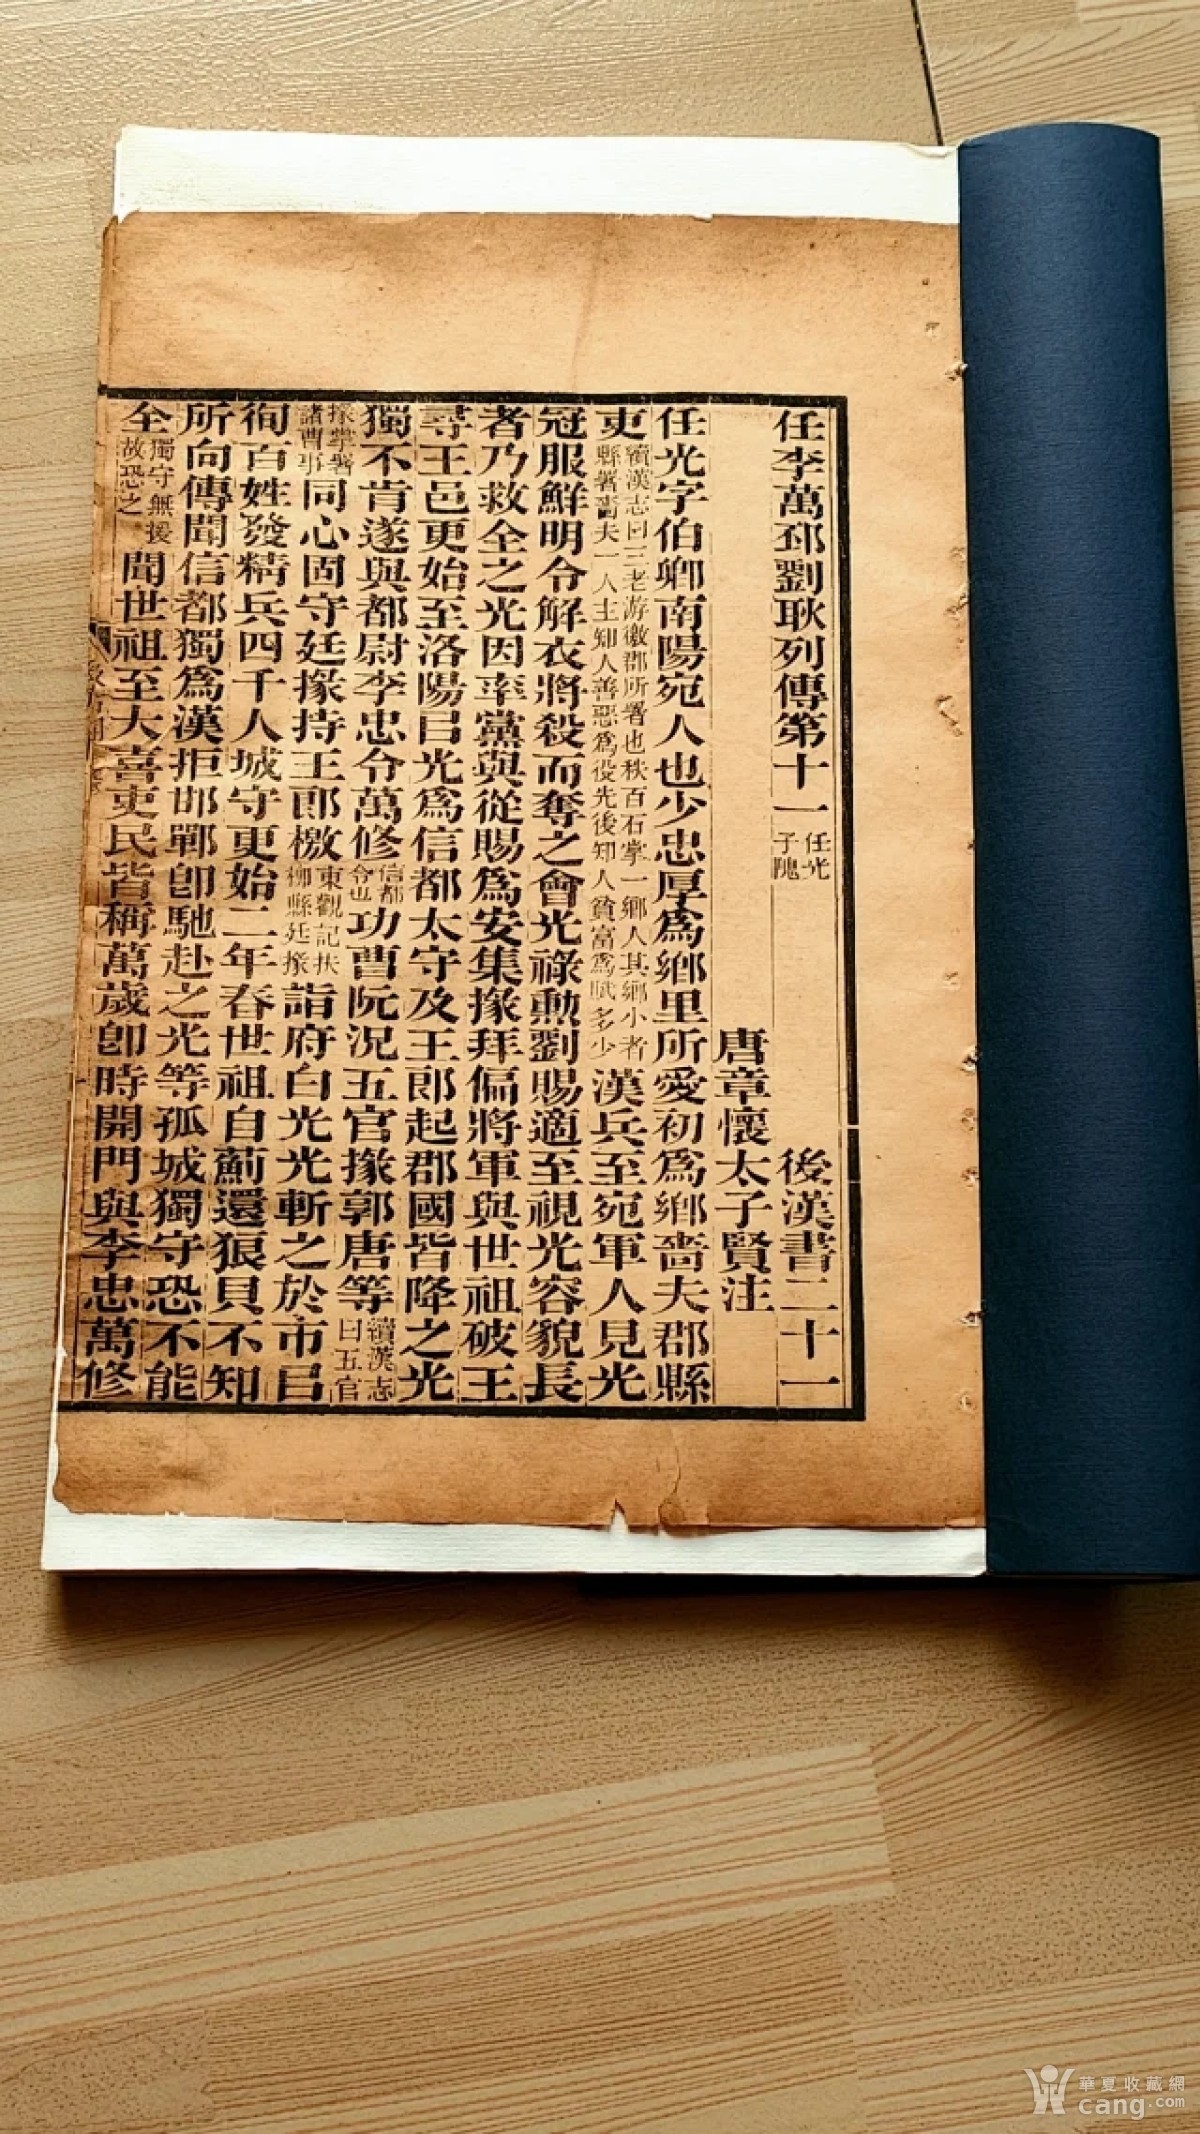 任李萬邳劉耿列傳第十一 任光 子隗 後漢書二十一
唐章懷太子賢注
任光字伯卿南陽宛人也少忠厚爲鄉里所愛初爲鄉嗇夫郡縣
吏 續漢志曰三老游徼郡所署也秩百石掌一鄉人其鄉小者 縣署嗇夫一人主知人善惡爲役先後知人貧富爲賦多少 漢兵至宛軍人見光
冠服鮮明令解衣將殺而奪之會光祿勲劉賜適至視光容貌長
者乃救全之光因率黨與從賜爲安集掾拜偏將軍與世祖破王
尋王邑更始至洛陽㠯光爲信都太守及王郎起郡國皆降之光
獨不肯遂與都尉李忠令萬修 信都 令也 功曹阮況五官掾郭唐等 續漢志 曰五官
掾掌署 諸曹事 同心固守廷掾持王郎檄 東觀記扶 柳縣廷掾 詣府白光光斬之於市㠯
徇百姓發精兵四千人城守更始二年春世祖自薊還狼貝不知
所向傳聞信都獨爲漢拒邯鄲卽馳赴之光等孤城獨守恐不能
全 獨守無援 故恐之 聞世祖至大喜吏民皆稱萬歲卽時開門與李忠萬修
華夏收藏網
cang.com